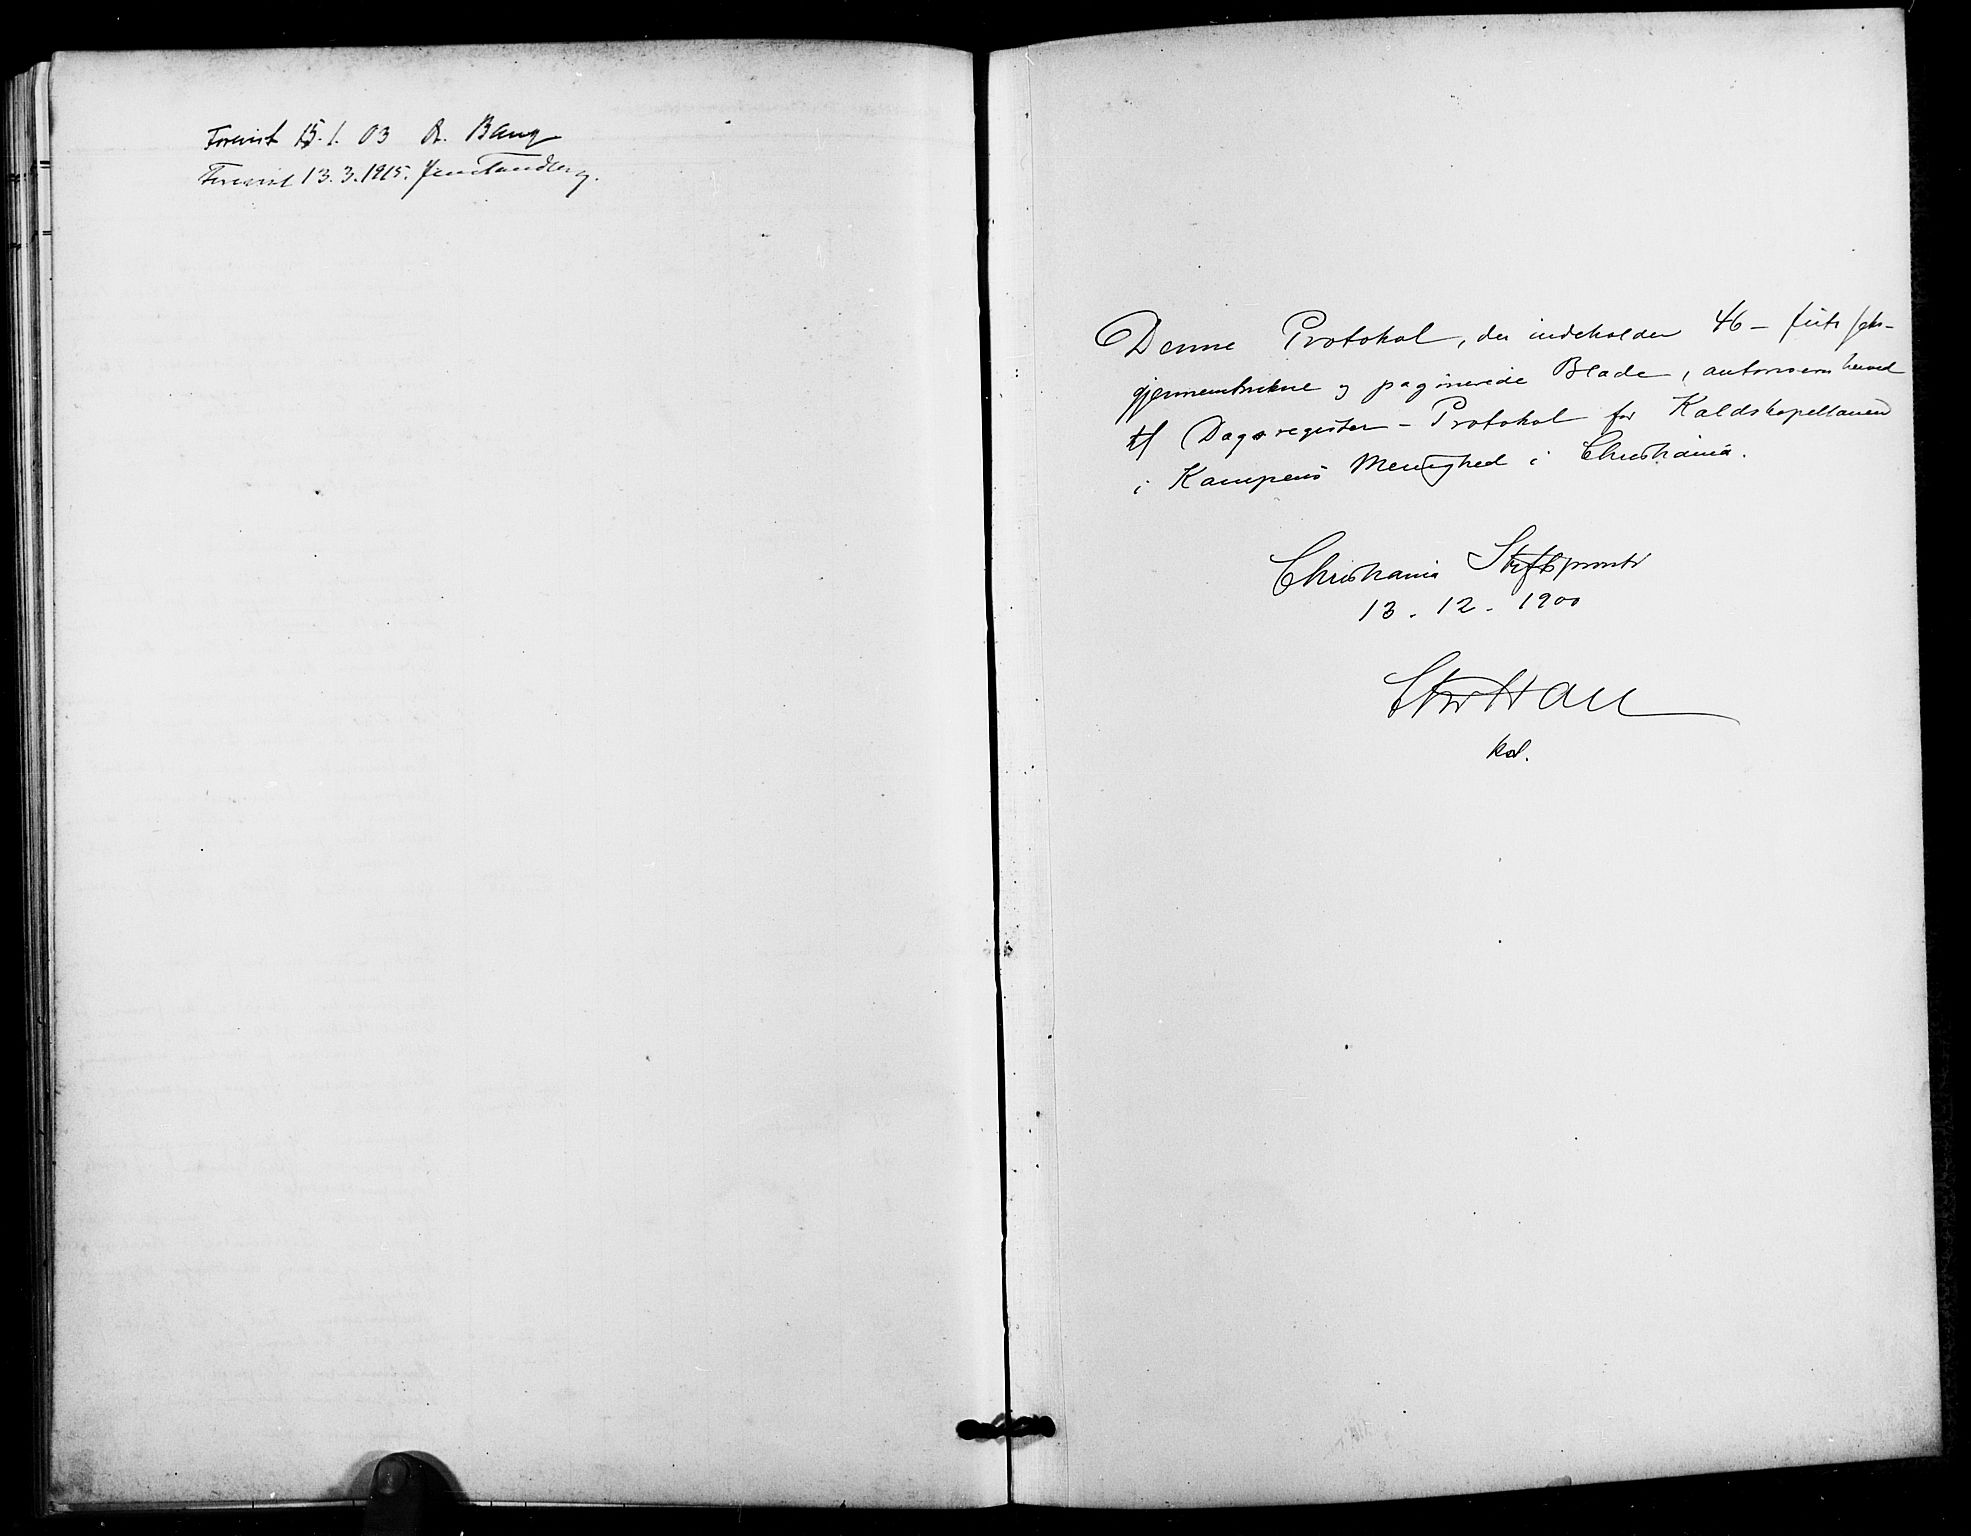 Forevist 15.1.03 A. Bang
Forevist 13.3.1915. Jens Tandberg.
Denne Protokol, der indeholder 46 – firti seks –
gjennemtrukne og paginerede Blade, autoriseres herved
til Dagsregister-Protokol for Kaldskapellanen
i Kampens Menighed i Christiania.
Christiania Stiftsprovsti
13. 12. 1900
kst.